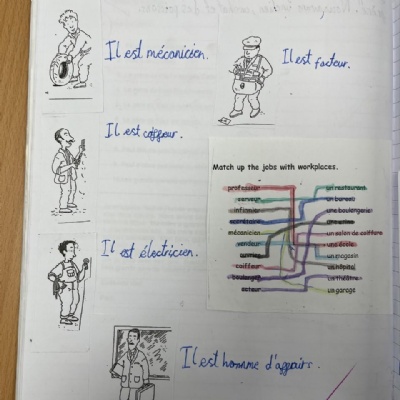 Il est mécanicien.
Il est facteur.
Il est coiffeur.
Match up the jobs with workplaces.
professeur
serveur
infirmier
secrétaire
mécanicien
vendeur
coiffeur
boulanger
acteur
un restaurant
un bureau
une boulangerie
un salon de coiffure
une école
un magasin
un hôpital
un théâtre
un garage
Il est électricien.
Il est homme d'affairs.